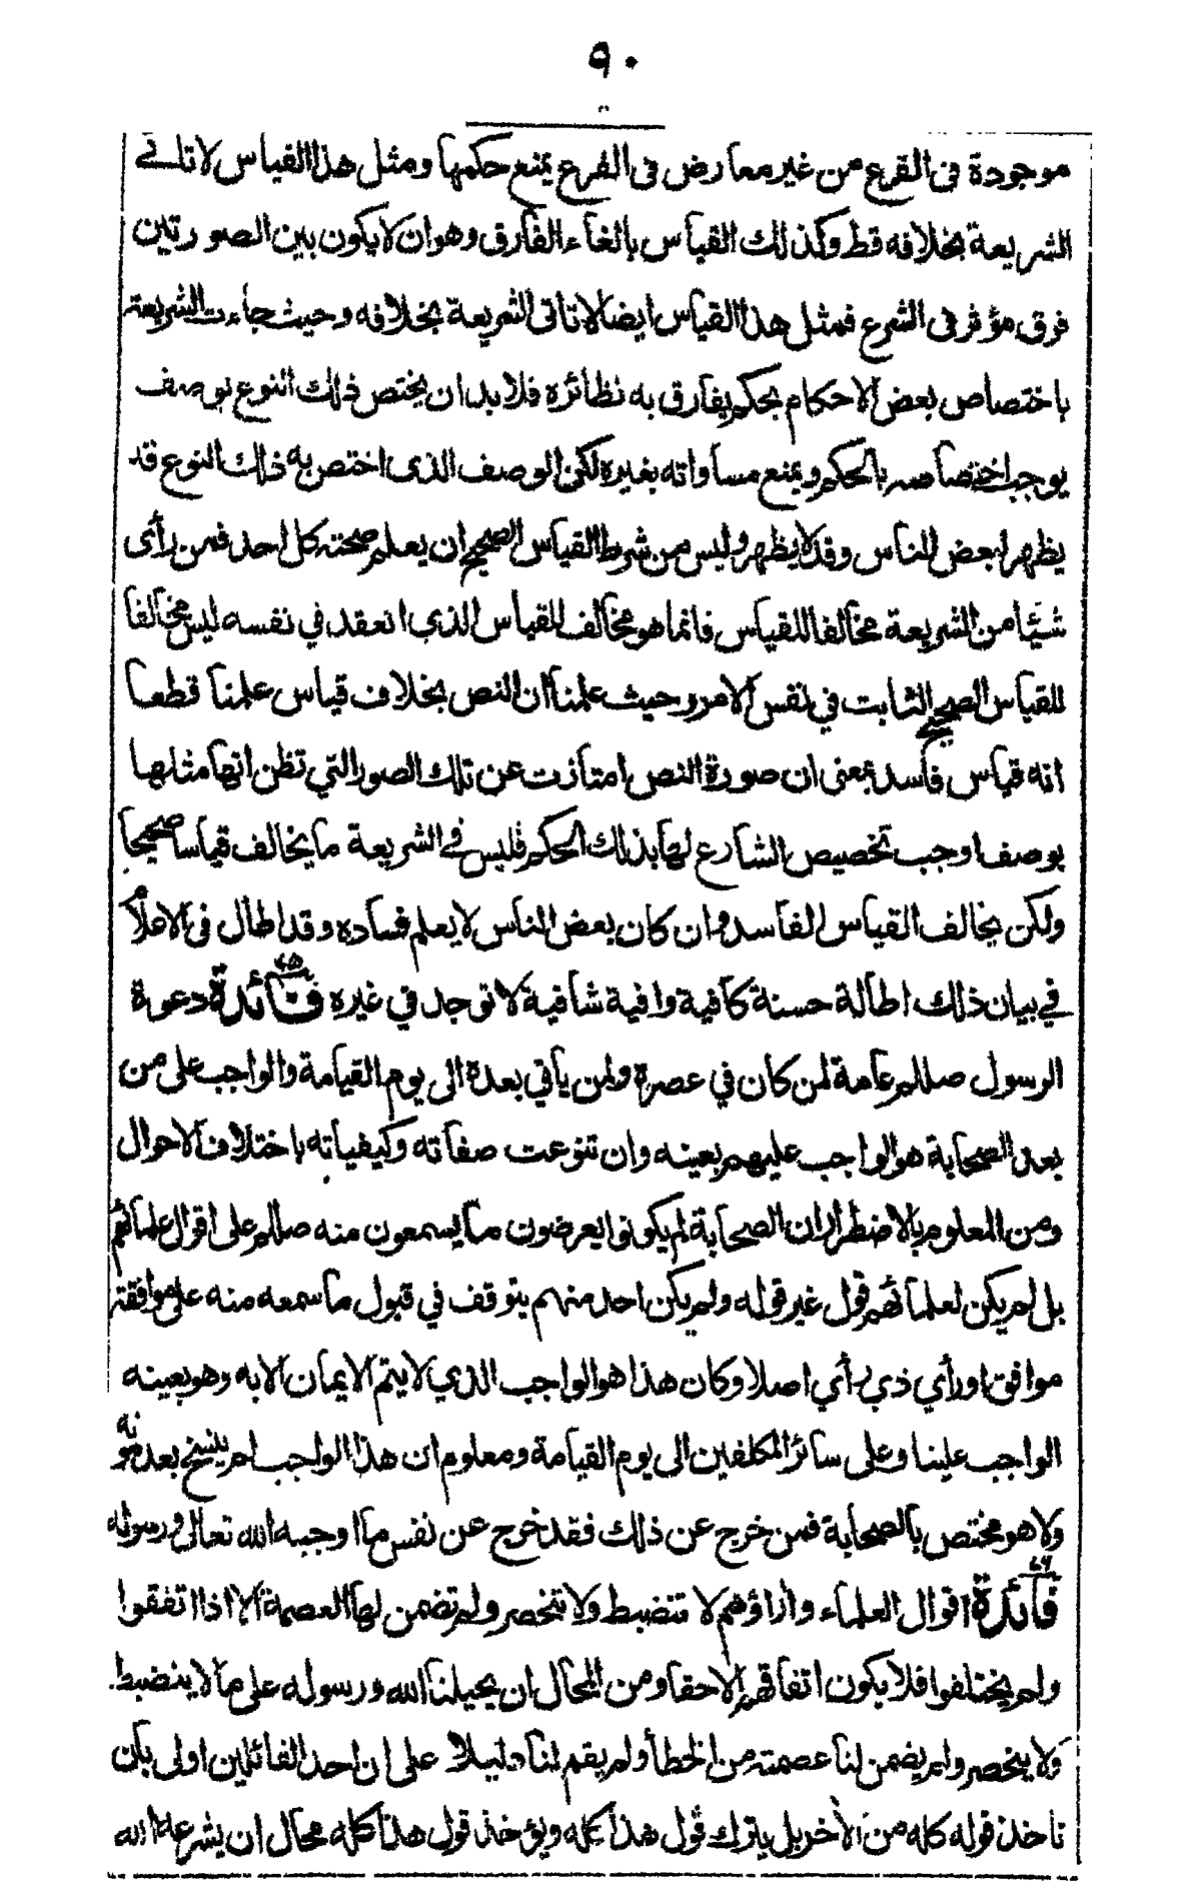 ٩٠
موجودة فى الفرع من غير معارض فى الفرع يمنع حكمها ومثل هذا القياس لا تاتى
الشريعة بخلافه قط وكذلك القياس بالغاء الفارق وهو ان لا يكون بين الصورتين
فرق مؤثر فى الشرع فمثل هذا القياس ايضا لا تاتى الشريعة بخلافه وحيث جاءت الشريعة
باختصاص بعض الاحكام بحكم يفارق به نظائره فلا بد ان يختص ذلك النوع بوصف
يوجب اختصاصه بالحكم ويمنع مساواته بغيره لكن الوصف الذى اختص به ذلك النوع قد
يظهر لبعض الناس وقد لا يظهر وليس من شرط القياس الصحيح ان يعلم صحته كل احد فمن رأى
شيئا من الشريعة مخالفا للقياس فانما هو مخالف للقياس الذي انعقد في نفسه ليس مخالفا
للقياس الصحيح الثابت في نفس الامر وحيث علمنا ان النص بخلاف قياس علمنا قطعا
انه قياس فاسد بمعنى ان صورة النص امتازت عن تلك الصور التي تظن انها مثلها
بوصف اوجب تخصيص الشارع لها بذلك الحكم فليس في الشريعة ما يخالف قياسا صحيحا
ولكن يخالف القياس الفاسد وان كان بعض الناس لا يعلم فساده وقد اطال فى الاعلام
في بيان ذلك اطالة حسنة كافية وافية شافية لا توجد في غيره فائدة ٢٥ دعوة
الرسول صللم عامة لمن كان في عصره ولمن يأتي بعده الى يوم القيامة والواجب على من
بعد الصحابة هو الواجب عليهم بعينه وان تنوعت صفاته وكيفياته باختلاف الاحوال
ومن المعلوم بالاضطرار ان الصحابة لم يكونوا يعرضون ما يسمعون منه صللم على اقوال علمائهم
بل لم يكن لعلمائهم قول غير قوله ولم يكن احد منهم يتوقف في قبول ما سمعه منه على موافقة
موافق او رأي ذي رأي اصلا وكان هذا هو الواجب الذي لا يتم الايمان الا به وهو بعينه
الواجب علينا وعلى سائر المكلفين الى يوم القيامة ومعلوم ان هذا الواجب لم ينسخ بعد موته
ولا هو مختص بالصحابة فمن خرج عن ذلك فقد خرج عن نفس ما اوجبه الله تعالى ورسوله
فائدة ٢٦ اقوال العلماء وأراؤهم لا تنضبط ولا تنحصر ولم تضمن لها العصمة الا اذا اتفقوا
ولم يختلفوا فلا يكون اتفاقهم الا حقا ومن المحال ان يحيلنا الله ورسوله على ما لا ينضبط
ولا ينحصر ولم يضمن لنا عصمته من الخطأ ولم يقم لنا دليلا على ان احد القائلين اولى بان
ناخذ قوله كله من الأخر بل يترك قول هذا كله ويؤخذ قول هذا كله محال ان يشرعه الله